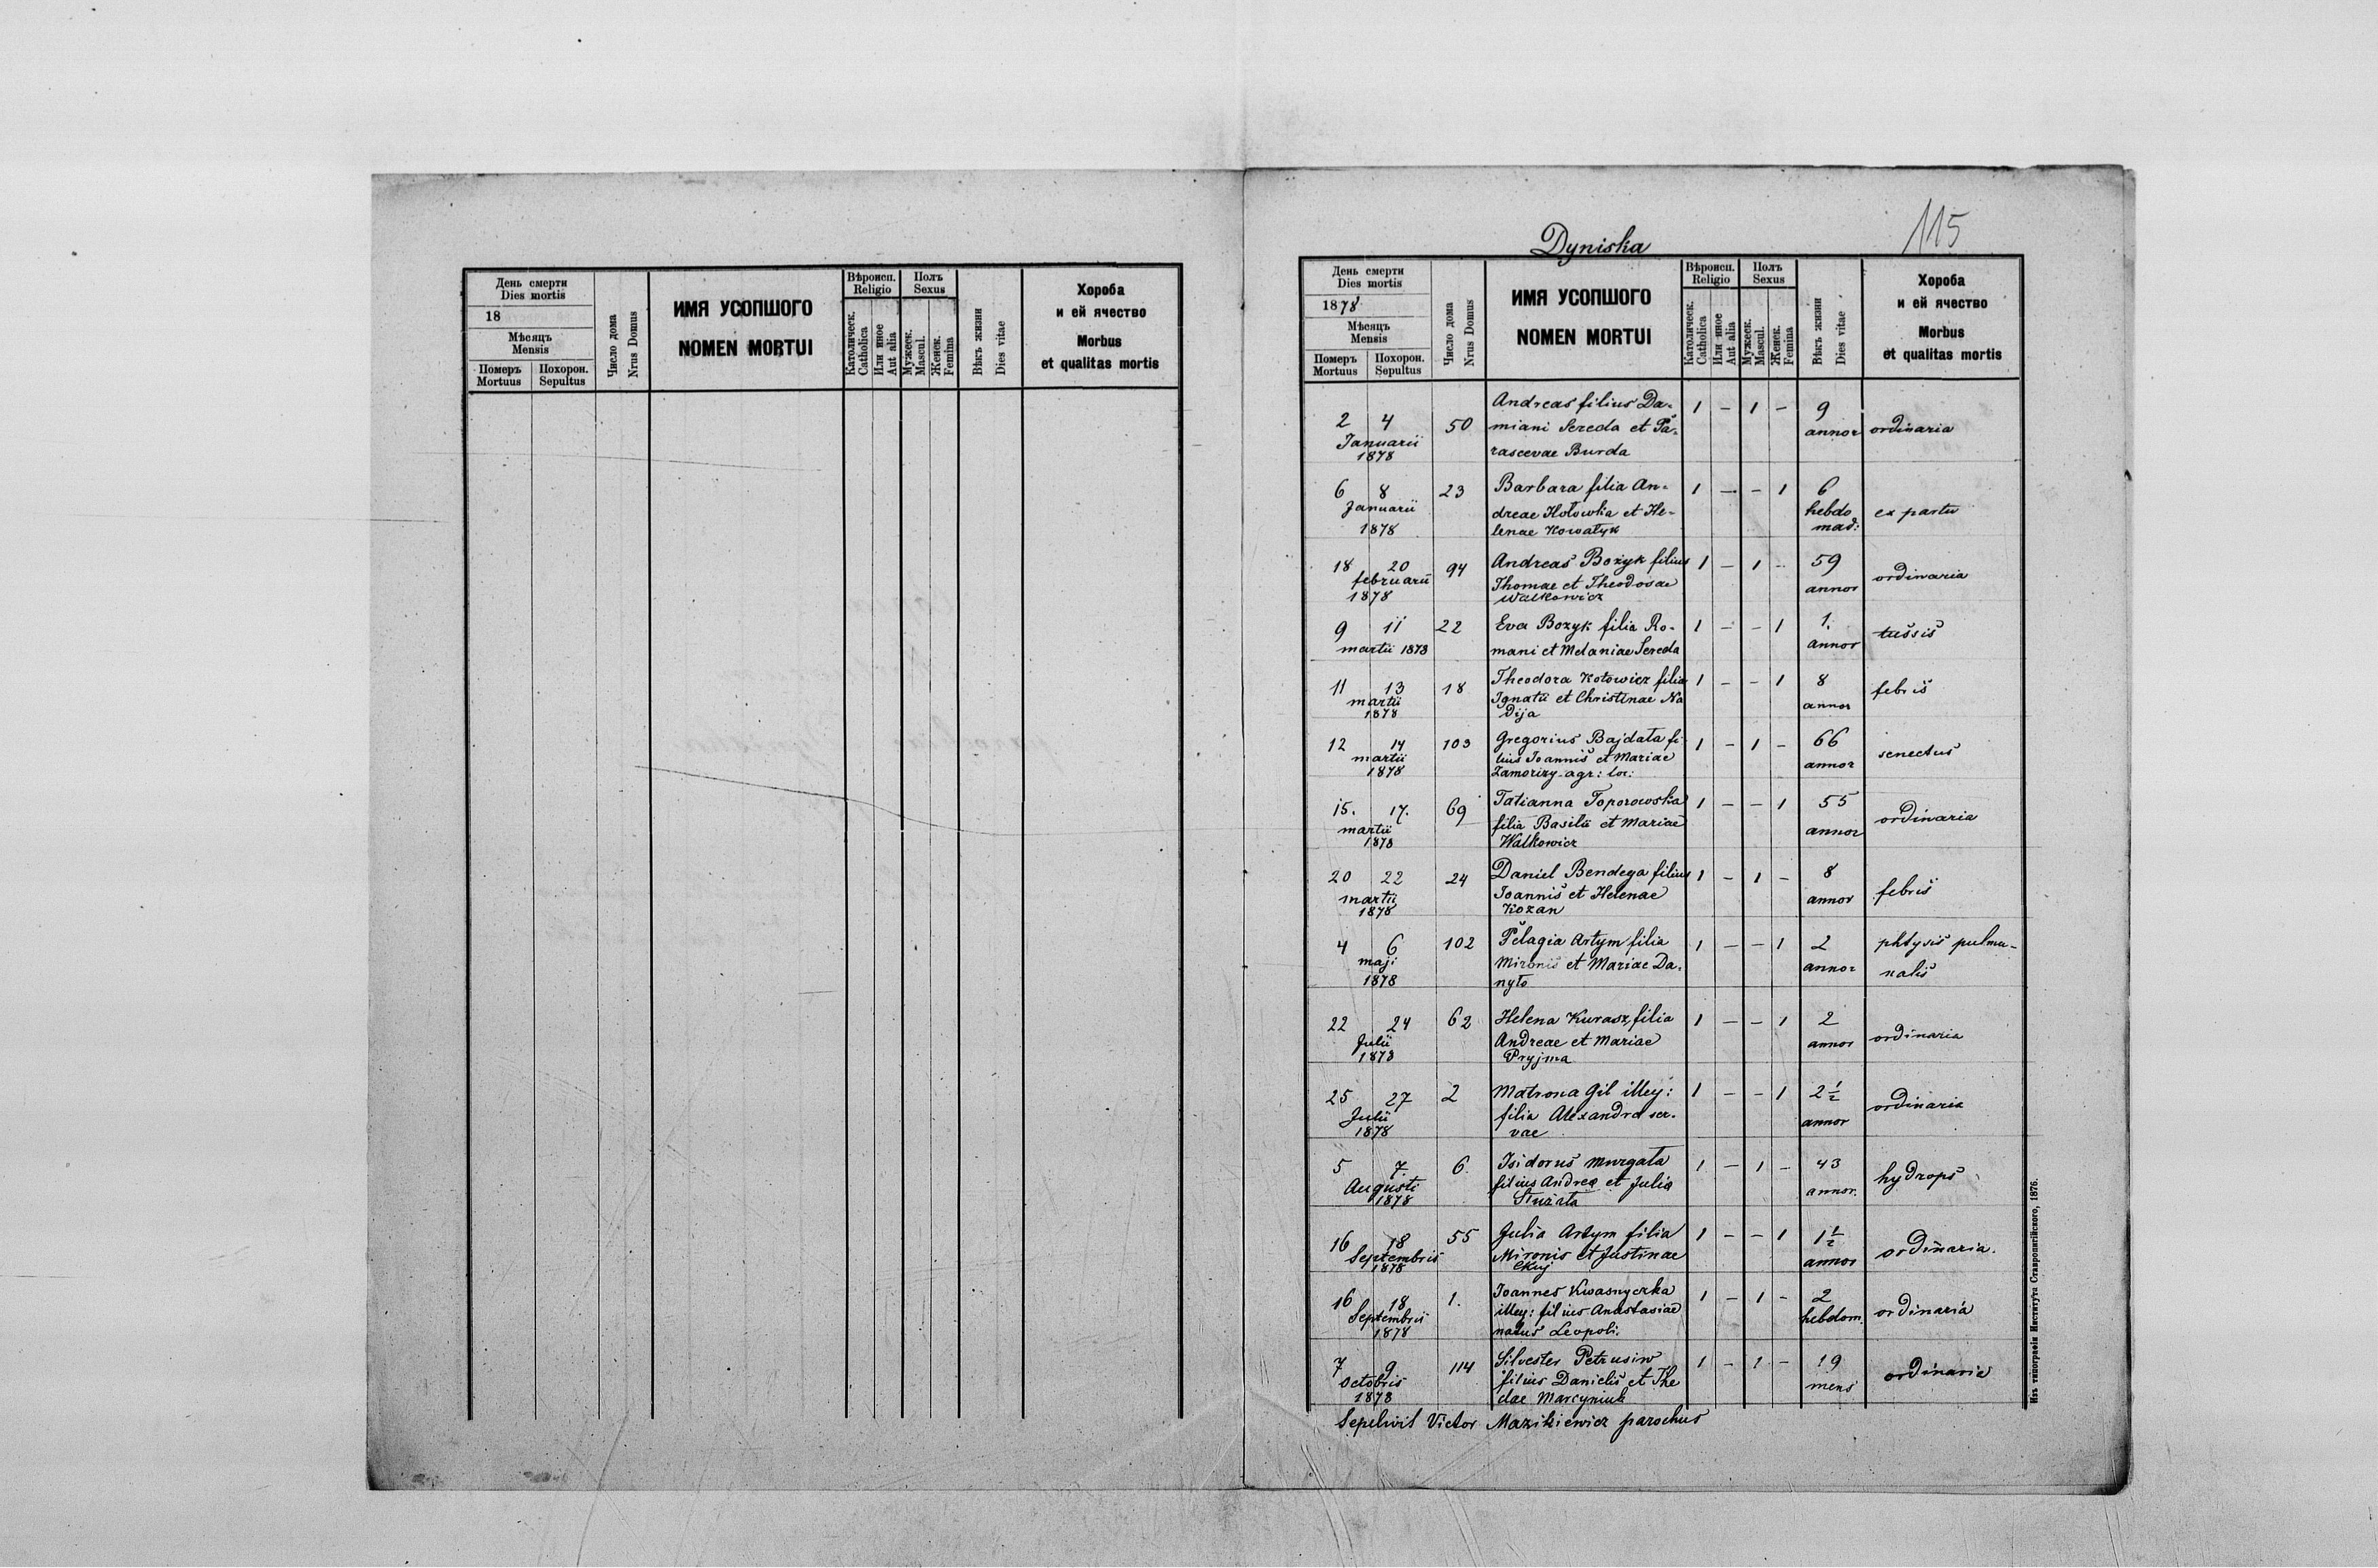 День смерти
Dies mortis
18
Мѣсяцъ
Mensis
Померъ
Mortuus
Похорон.
Sepultus
Число дома
Nrus Domus
ИМЯ УСОПШОГО
NOMEN MORTUI
Вѣроисп.
Religio
Католическ.
Catholica
Или иное
Aut alia
Полъ
Sexus
Мужеск.
Mascul.
Женск.
Femina
Вѣкъ жизни
Dies vitae
Хороба
и ей ячество
Morbus
et qualitas mortis
115
Dyniska
День смерти
Dies mortis
1878
Мѣсяцъ
Mensis
Померъ
Mortuus
Похорон.
Sepultus
Число дома
Nrus Domus
ИМЯ УСОПШОГО
NOMEN MORTUI
Вѣроисп.
Religio
Католическ.
Catholica
Или иное
Aut alia
Полъ
Sexus
Мужеск.
Mascul.
Женск.
Femina
Вѣкъ жизни
Dies vitae
Хороба
и ей ячество
Morbus
et qualitas mortis
Andreas filius Da-
2 4 50 miani Sereda et Pa- 1 - 1 - 9
Januarii annor ordinaria
1878 rascevae Burda
6 8 23 Barbara filia An- 1 - - 1 6
Januarii dreae Hołowka et He- hebdo ex partu
1878 lenae Kowałyk mad:
18 20 94 Andreas Bożyk filius 1 - 1 - 59
februarii Thomae et Theodosae annor ordinaria
1878 Walkowicz
9 11 22 Eva Bozyk filia Ro- 1 - - 1 1.
martii 1878 mani et Melaniae Sereda annor tussis
11 13 18 Theodora Kotowicz filia 1 - - 1 8
martii Ignatii et Christinae Na annor febris
1878 dija
12 14 103 Gregorius Bajdała fi- 1 - 1 - 66
martii lius Joannis et Mariae annor senectus
1878 Zamorizy agr: loc:
15. 17. 69 Tatianna Toporowska 1 - - 1 55
martii filia Basilii et Mariae annor ordinaria
1878 Walkowicz
20 22 24 Daniel Bendega filius 1 - 1 - 8
martii Joannis et Helenae annor febris
1878 Kozan
4 6 102 Pelagia Artym filia 1 - - 1 2 phtysis pulmo-
maji Mironis et Mariae Da- annor nalis
1878 nyło
22 24 62 Helena Kurasz filia 1 - - 1 2
Julii Andreae et Mariae annor ordinaria
1878 Pryjma
25 27 2 Matrona Gil illey: 1 - - 1 2½
Julii filia Alexandra ser- annor ordinaria
1878 vae
5 7. 6. Isidorus Murgała 1 - 1 - 43
Augusti filius Andrea et Julia annor. hydrops
1878
16 18 55 Julia Artym filia 1 - - 1 1½
Septembris Mironis et Justinae annor ordinaria.
1878
16 18 1. Joannes Kwasnyczka 1 - 1 - 2
Septembris illey: filius Anastasiae hebdom. ordinaria
1878 natus Leopoli.
7 9 114 Silvester Petrusiw 1 - 1 - 19
octobris filius Danielis et The mens ordinaria
1878 clae Marcyniuk
Sepelivit Victor Mazikiewicz parochus
Изъ типографіи Института Ставропигійского, 1876.